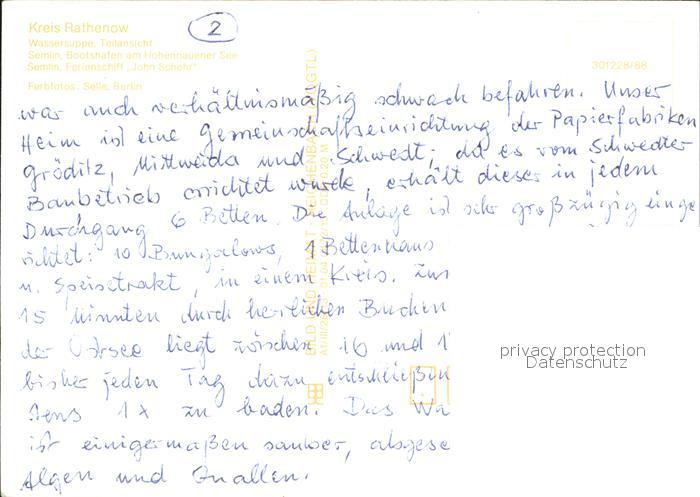 Kreis Rathenow
Wassersuppe, Teilansicht
Semlin, Bootshafen am Hohennauener See
Semlin, Ferienschiff „John Schehr"
Farbfotos: Selle, Berlin
2
301228/88
war auch verhältnismäßig schwach befahren. Unser
Heim ist eine Gemeinschaftseinrichtung der Papierfabriken
Gröditz, Mittweida und Schwedt; da es vom Schwedter
Baubetrieb errichtet wurde, erhält dieser in jedem
Durchgang 6 Betten. Die Anlage ist sehr großzügig einge
richtet: 10 Bungalows, 1 Bettenhaus
u. Speisetrakt, in einem Kreis. Zur
15 Minuten durch herrlichen Buchen
der Ostsee liegt zwischen 16 und 1
bisher jeden Tag dazu entschließen
tens 1x zu baden. Das Wa
ist einigermaßen sauber, abgese
Algen und Quallen.
BILD UND HEIMAT · REICHENBACH (VOGTL)
privacy protection
Datenschutz